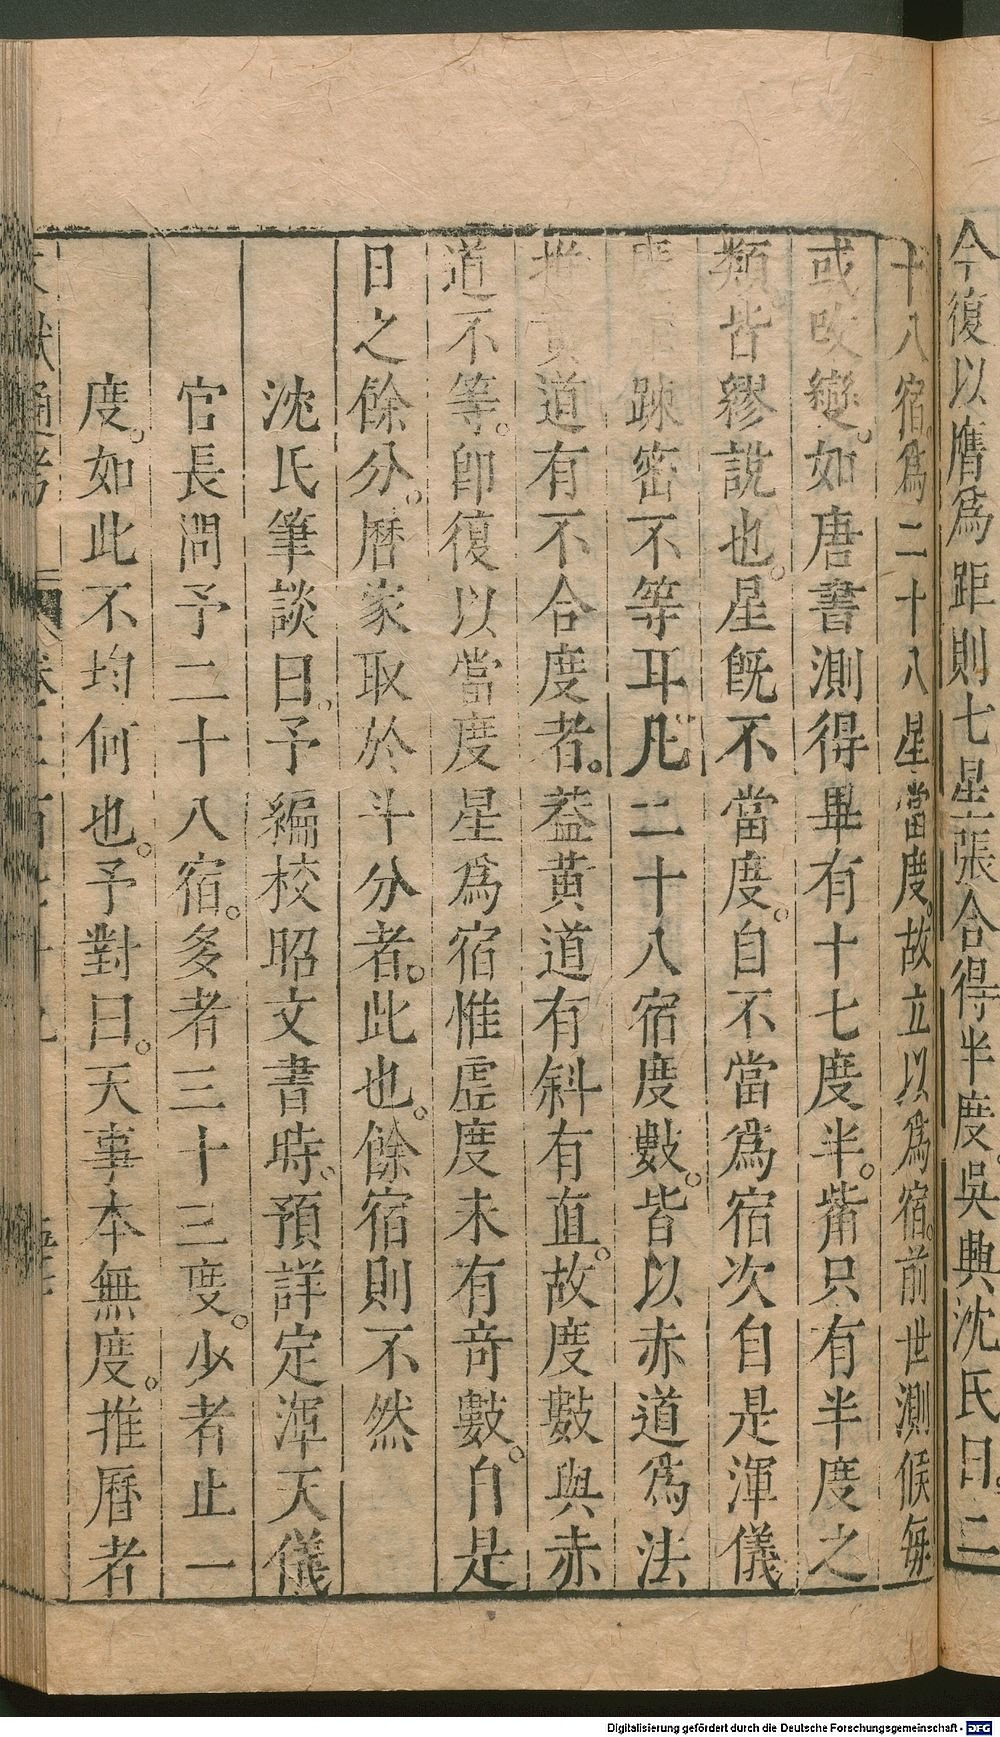 今復以膺爲距則七星張合得半度。吳興沈氏曰。二
十八宿。爲二十八星當度。故立以爲宿。前世測候每
或改變。如唐書測得畢有十七度半。觜只有半度之
類。皆繆說也。星旣不當度。自不當爲宿次自是渾儀
度距踈密不等耳。凡二十八宿度數。皆以赤道爲法
推黃道有不合度者。葢黃道有斜有直。故度數與赤
道不等。卽復以當度星爲宿惟虛度未有奇數。自是
日之餘分。曆家取於斗分者。此也。餘宿則不然
沈氏筆談曰。予編校昭文書時。預詳定渾天儀
官長問予二十八宿。多者三十三度。少者止一
度。如此不均何也。予對曰。天事本無度。推曆者
文獻通考
Digitalisierung gefördert durch die Deutsche Forschungsgemeinschaft - DFG